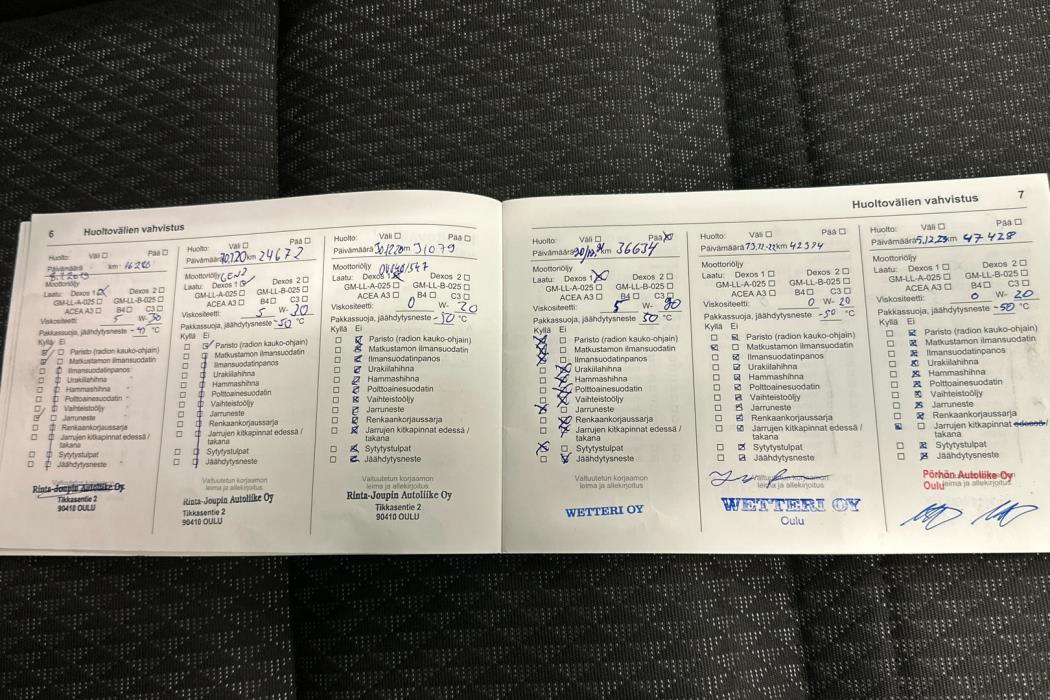 6 Huoltovälien vahvistus
Huolto: Väli Pää
Päivämäärä km
Moottoriöljy
Laatu: Dexos 1 Dexos 2
GM-LL-A-025 GM-LL-B-025
ACEA A3 B4 C3
Viskositeetti: 5 W- 30
Pakkassuoja, jäähdytysneste -40 °C
Kyllä Ei
Paristo (radion kauko-ohjain)
Matkustamon ilmansuodatin
Ilmansuodatinpanos
Urakiilahihna
Hammashihna
Polttoainesuodatin
Vaihteistoöljy
Jarruneste
Renkaankorjaussarja
Jarrujen kitkapinnat edessä /
takana
Sytytystulpat
Jäähdytysneste
Valtuutetun korjaamon
Rinta-Joupin Autoliike Oy
Tikkasentie 2
90410 OULU
Huolto: Väli Pää
Päivämäärä km 24672
Moottoriöljy GEN2
Laatu: Dexos 1 Dexos 2
GM-LL-A-025 GM-LL-B-025
ACEA A3 B4 C3
Viskositeetti: 5 W- 20
Pakkassuoja, jäähdytysneste -50 °C
Kyllä Ei
Paristo (radion kauko-ohjain)
Matkustamon ilmansuodatin
Ilmansuodatinpanos
Urakiilahihna
Hammashihna
Polttoainesuodatin
Vaihteistoöljy
Jarruneste
Renkaankorjaussarja
Jarrujen kitkapinnat edessä /
takana
Sytytystulpat
Jäähdytysneste
Valtuutetun korjaamon
leima ja allekirjoitus
Rinta-Joupin Autoliike Oy
Tikkasentie 2
90410 OULU
Huolto: Väli Pää
Päivämäärä 30.12.20 km 31079
Moottoriöljy
Laatu: Dexos 1 Dexos 2
GM-LL-A-025 GM-LL-B-025
ACEA A3 B4 C3
Viskositeetti: 0 W- 20
Pakkassuoja, jäähdytysneste °C
Kyllä Ei
Paristo (radion kauko-ohjain)
Matkustamon ilmansuodatin
Ilmansuodatinpanos
Urakiilahihna
Hammashihna
Polttoainesuodatin
Vaihteistoöljy
Jarruneste
Renkaankorjaussarja
Jarrujen kitkapinnat edessä /
takana
Sytytystulpat
Jäähdytysneste
Valtuutetun korjaamon
leima ja allekirjoitus
Rinta-Joupin Autoliike Oy
Tikkasentie 2
90410 OULU
Huoltovälien vahvistus 7
Huolto: Väli Pää
Päivämäärä km 36634
Moottoriöljy
Laatu: Dexos 1 Dexos 2
GM-LL-A-025 GM-LL-B-025
ACEA A3 B4 C3
Viskositeetti: 5 W- 30
Pakkassuoja, jäähdytysneste 50 °C
Kyllä Ei
Paristo (radion kauko-ohjain)
Matkustamon ilmansuodatin
Ilmansuodatinpanos
Urakiilahihna
Hammashihna
Polttoainesuodatin
Vaihteistoöljy
Jarruneste
Renkaankorjaussarja
Jarrujen kitkapinnat edessä /
takana
Sytytystulpat
Jäähdytysneste
Valtuutetun korjaamon
leima ja allekirjoitus
WETTERI OY
Huolto: Väli Pää
Päivämäärä km
Moottoriöljy
Laatu: Dexos 1 Dexos 2
GM-LL-A-025 GM-LL-B-025
ACEA A3 B4 C3
Viskositeetti: 0 W- 20
Pakkassuoja, jäähdytysneste -50 °C
Kyllä Ei
Paristo (radion kauko-ohjain)
Matkustamon ilmansuodatin
Ilmansuodatinpanos
Urakiilahihna
Hammashihna
Polttoainesuodatin
Vaihteistoöljy
Jarruneste
Renkaankorjaussarja
Jarrujen kitkapinnat edessä /
takana
Sytytystulpat
Jäähdytysneste
Valtuutetun korjaamon
leima ja allekirjoitus
WETTERI OY
Oulu
Huolto: Väli Pää
Päivämäärä 5.12.23 km 47428
Moottoriöljy
Laatu: Dexos 1 Dexos 2
GM-LL-A-025 GM-LL-B-025
ACEA A3 B4 C3
Viskositeetti: 0 W- 20
Pakkassuoja, jäähdytysneste -50 °C
Kyllä Ei
Paristo (radion kauko-ohjain)
Matkustamon ilmansuodatin
Ilmansuodatinpanos
Urakiilahihna
Hammashihna
Polttoainesuodatin
Vaihteistoöljy
Jarruneste
Renkaankorjaussarja
Jarrujen kitkapinnat edessä /
takana
Sytytystulpat
Jäähdytysneste
Pörhön Autoliike Oy
Oulu leima ja allekirjoitus